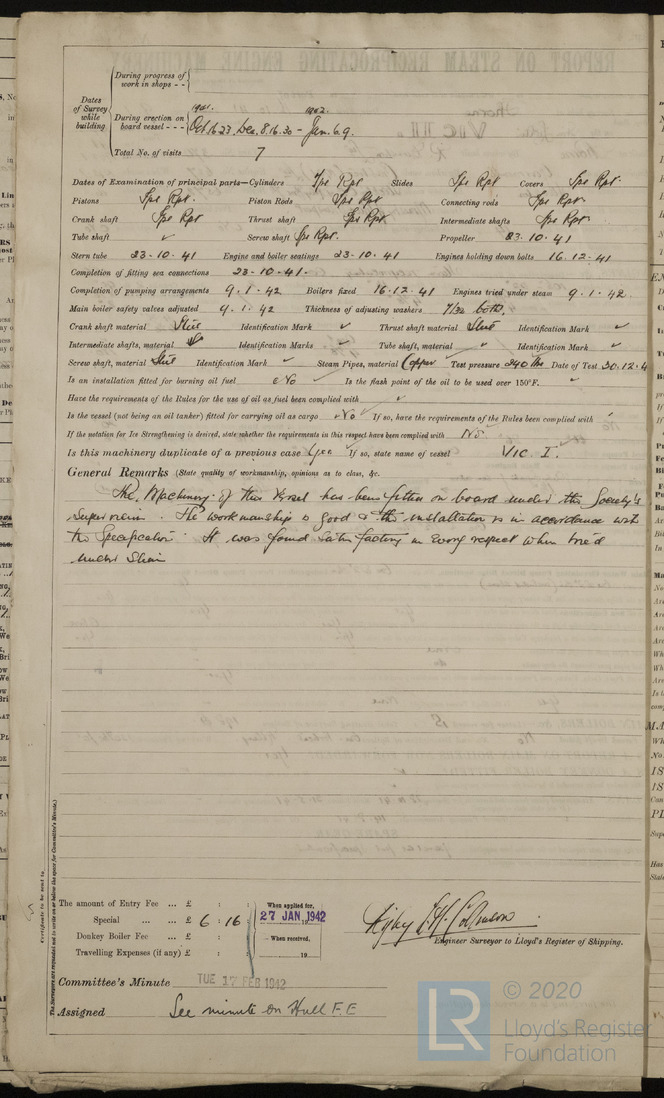 During progress of work in shops - -
Dates of Survey while building
1941. 1942.
During erection on board vessel - - - Oct. 16. 23. Dec. 8. 16. 30 - Jan. 6. 9.
Total No. of visits 7
Dates of Examination of principal parts—Cylinders Spe Rpt Slides Spe Rpt Covers Spe Rpt.
Pistons Spe Rpt. Piston Rods Spe Rpt. Connecting rods Spe Rpt.
Crank shaft Spe Rpt Thrust shaft Spe Rpt. Intermediate shafts Spe Rpt.
Tube shaft ✓ Screw shaft Spe Rpt. Propeller 23.10.41
Stern tube 23.10.41 Engine and boiler seatings 23.10.41 Engines holding down bolts 16.12.41
Completion of fitting sea connections 23.10.41.
Completion of pumping arrangements 9.1.42 Boilers fixed 16.12.41 Engines tried under steam 9.1.42.
Main boiler safety valves adjusted 9.1.42 Thickness of adjusting washers 7/32 both
Crank shaft material Steel Identification Mark ✓ Thrust shaft material Steel Identification Mark ✓
Intermediate shafts, material Identification Marks ✓ Tube shaft, material ✓ Identification Mark ✓
Screw shaft, material Steel Identification Mark ✓ Steam Pipes, material Copper Test pressure 240 lbs Date of Test 30.12.4
Is an installation fitted for burning oil fuel No Is the flash point of the oil to be used over 150°F. ✓
Have the requirements of the Rules for the use of oil as fuel been complied with ✓
Is the vessel (not being an oil tanker) fitted for carrying oil as cargo No If so, have the requirements of the Rules been complied with ✓
If the notation for Ice Strengthening is desired, state whether the requirements in this respect have been complied with No.
Is this machinery duplicate of a previous case Yes If so, state name of vessel VIC I.
General Remarks (State quality of workmanship, opinions as to class, &c.
The Machinery of this Vessel has been fitted on board under the Society's
Supervision. The workmanship is good & the installation is in accordance with
the Specification. It was found satisfactory in every respect when tried
under Steam
Certificate to be sent to
The Surveyors are requested not to write on or below the space for Committee's Minute.
The amount of Entry Fee ... £ : :
Special ... ... £ 6 : 16 :
Donkey Boiler Fee ... £ : :
Travelling Expenses (if any) £ : :
When applied for,
27 JAN 1942
When received,
19
Engineer Surveyor to Lloyd's Register of Shipping.
Committee's Minute TUE 17 FEB 1942
Assigned See minute on Hull F.E
LR © 2020
Lloyd's Register
Foundation